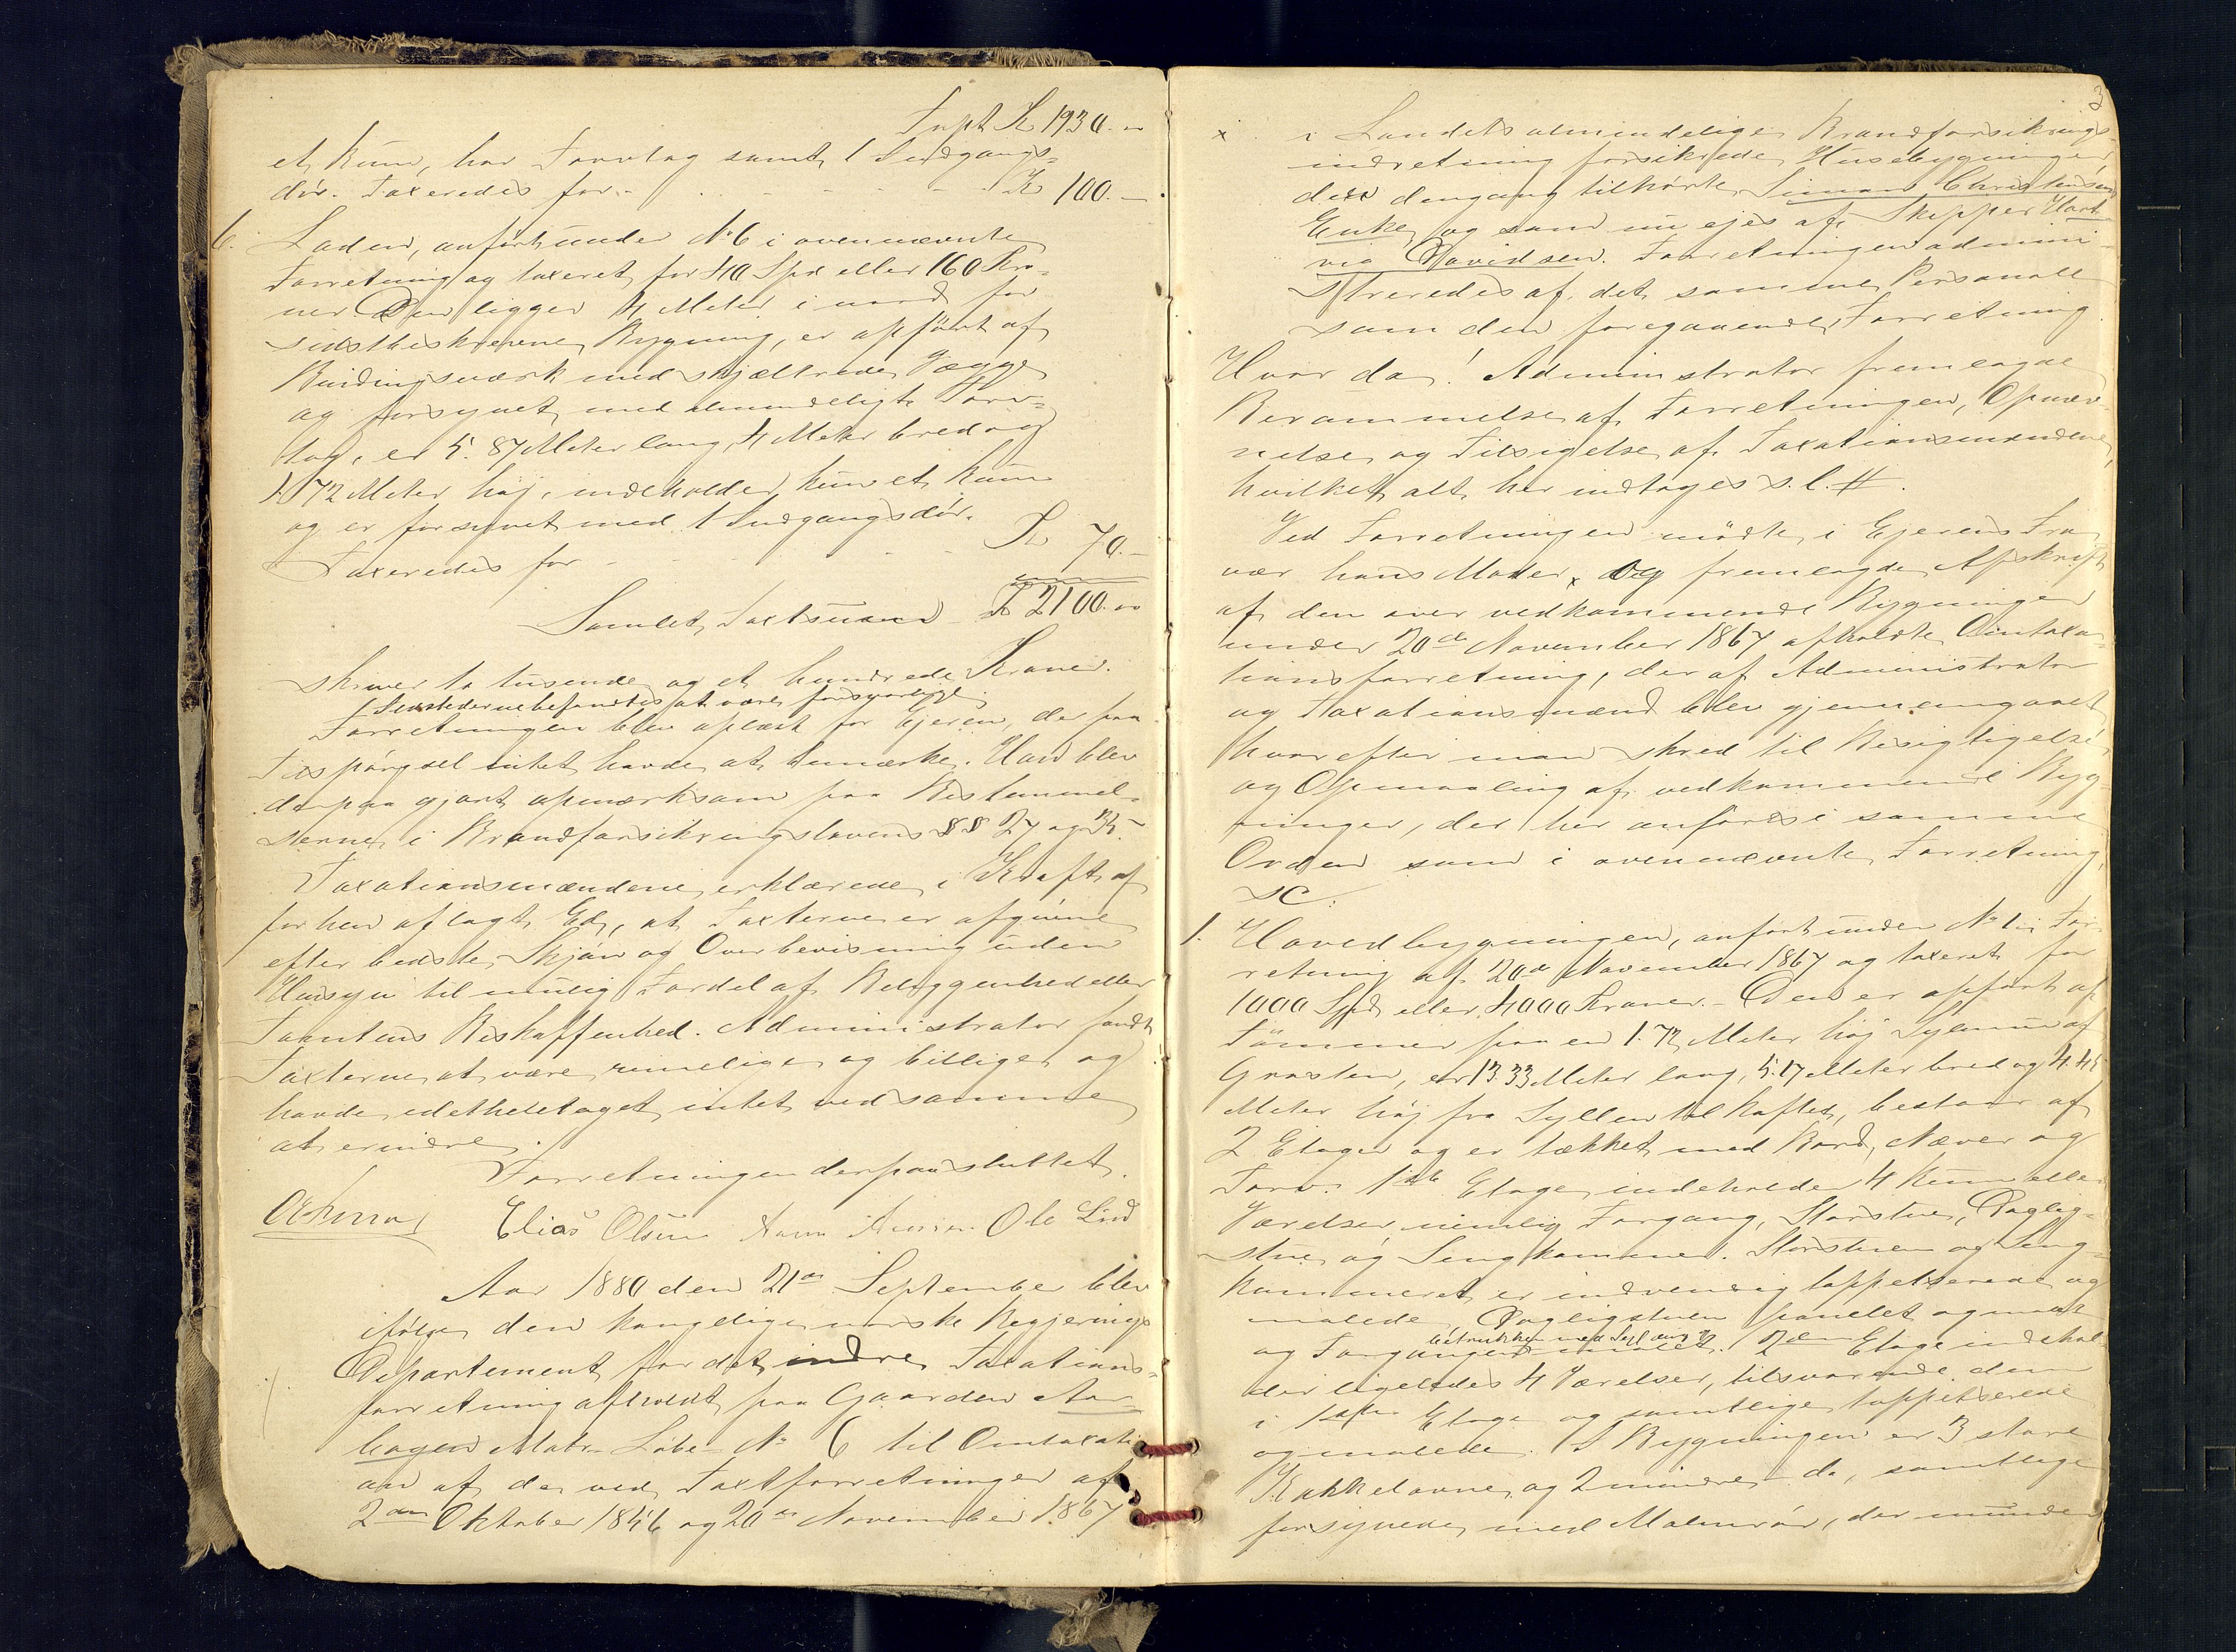 Trspt Kr 1930.00
et Rum, har Torvtag samt 1 Indgangs-
dør. Taxeredes for Kr 100.—
6. Laden, anført under No 6 i ovennævnte
Forretning og taxeret for 40 Spd eller 160 Kro-
ner. Den ligger 4 Meter i nord for
sidstbeskrevne Bygning, er opført af
Bindingsværk med skjeltrede Vægge
og forsynet med almindeligt Torv-
tag, er 5.87 Meter lang, 4 Meter bred og
1.72 Meter høj, indeholder kun et Rum
og er forsynet med 1 Indgangsdør.
Taxeredes for Kr 70.—
Samlet Taxtsum Kr 2100.00
skriver to tusende og et hundrede Kroner.
Ildstederne befandtes at være forsvarlige.
Forretningen blev oplæst for Ejeren, der paa
Tilspørgsel intet havde at bemærke. Han blev
derpaa gjort opmærksom paa Bestemmel-
serne i Brandforsikringslovens §§ 27 og 35.
Taxationsmændene erklærede i Kraft af
forhen aflagt Ed, at Taxterne er afgivne
efter bedste Skjøn og Overbevisning uden
Hensyn til mulig Fordel af Beliggenhed eller
Tomtens Beskaffenhed. Administrator fandt
Taxterne at være rimelige og billige og
havde idethele taget intet ved samme
at erindre.
Forretningen derpaa sluttet.
Elias Olsen Ole Lind
Aar 1880 den 21de September blev
ifølge den kongelige norske Regjerings
Departement for det indre Taxations-
forretning afholdt paa Gaarden Aar-
hagen Matr. Løbe No 6 til Omtaxati-
on af de ved Taxtforretninger af
2den Oktober 1846 og 20de November 1867
3
x i Landets almindelige Brandforsikrings-
indretning forsikrede Husebygninger,
der dengang tilhørte Simon Christensens
Enke, og som nu ejes af Skipper Hart-
vig Davidsen. Forretningen admini-
streredes af det samme Personale
som den foregaaende Forretning.
Hvor da! Administrator fremlagde
Berammelse af Forretningen, Opnæv-
nelse og Tilsigelse af Taxationsmændene,
hvilket alt her indtages s. l. #.
Ved Forretningen mødte i Ejerens Fra-
vær hans Moder, x og fremlagde Afskrift
af den over vedkommende Bygninger
under 20de November 1867 afholdte Omtaxa-
tionsforretning, der af Administrator
og Taxationsmænd blev gjennemgaaet,
hvorefter man skred til Besigtigelse
og Opmaaling af vedkommende Byg-
ninger, der her anføres i samme
Orden som i ovennævnte Forretning,
sc:
1. Hovedbygningen, anført under No 1 i For-
retning af 20de November 1867 og taxeret for
1000 Spd eller 4000 Kroner. – Den er opført af
Tømmer paa en 1.72 Meter høj Sylmur af
Graasten, er 13.33 Meter lang, 5.17 Meter bred og 4.45
Meter høj fra Syllen til Raftet, bestaar af
2 Etager og er tækket med Bord, Næver og
Torv. 1ste Etage indeholder 4 Rum eller
Værelser, nemlig Forgang, Storstue, Daglig-
stue og Sengkammer. Storstuen og Seng-
kammeret er indvendig tappetserede og
malede, Dagligstuen panelet og malet
og Forgangen malet. 2den Etage indehol-
der ligeledes 4 Værelser, tilsvarende dem
i 1ste Etage og samtlige tappetserede
og malede. I Bygningen er 3 store
Kakkelovne og 2 mindre do, samtlige
forsynede med Malmrør, der munder